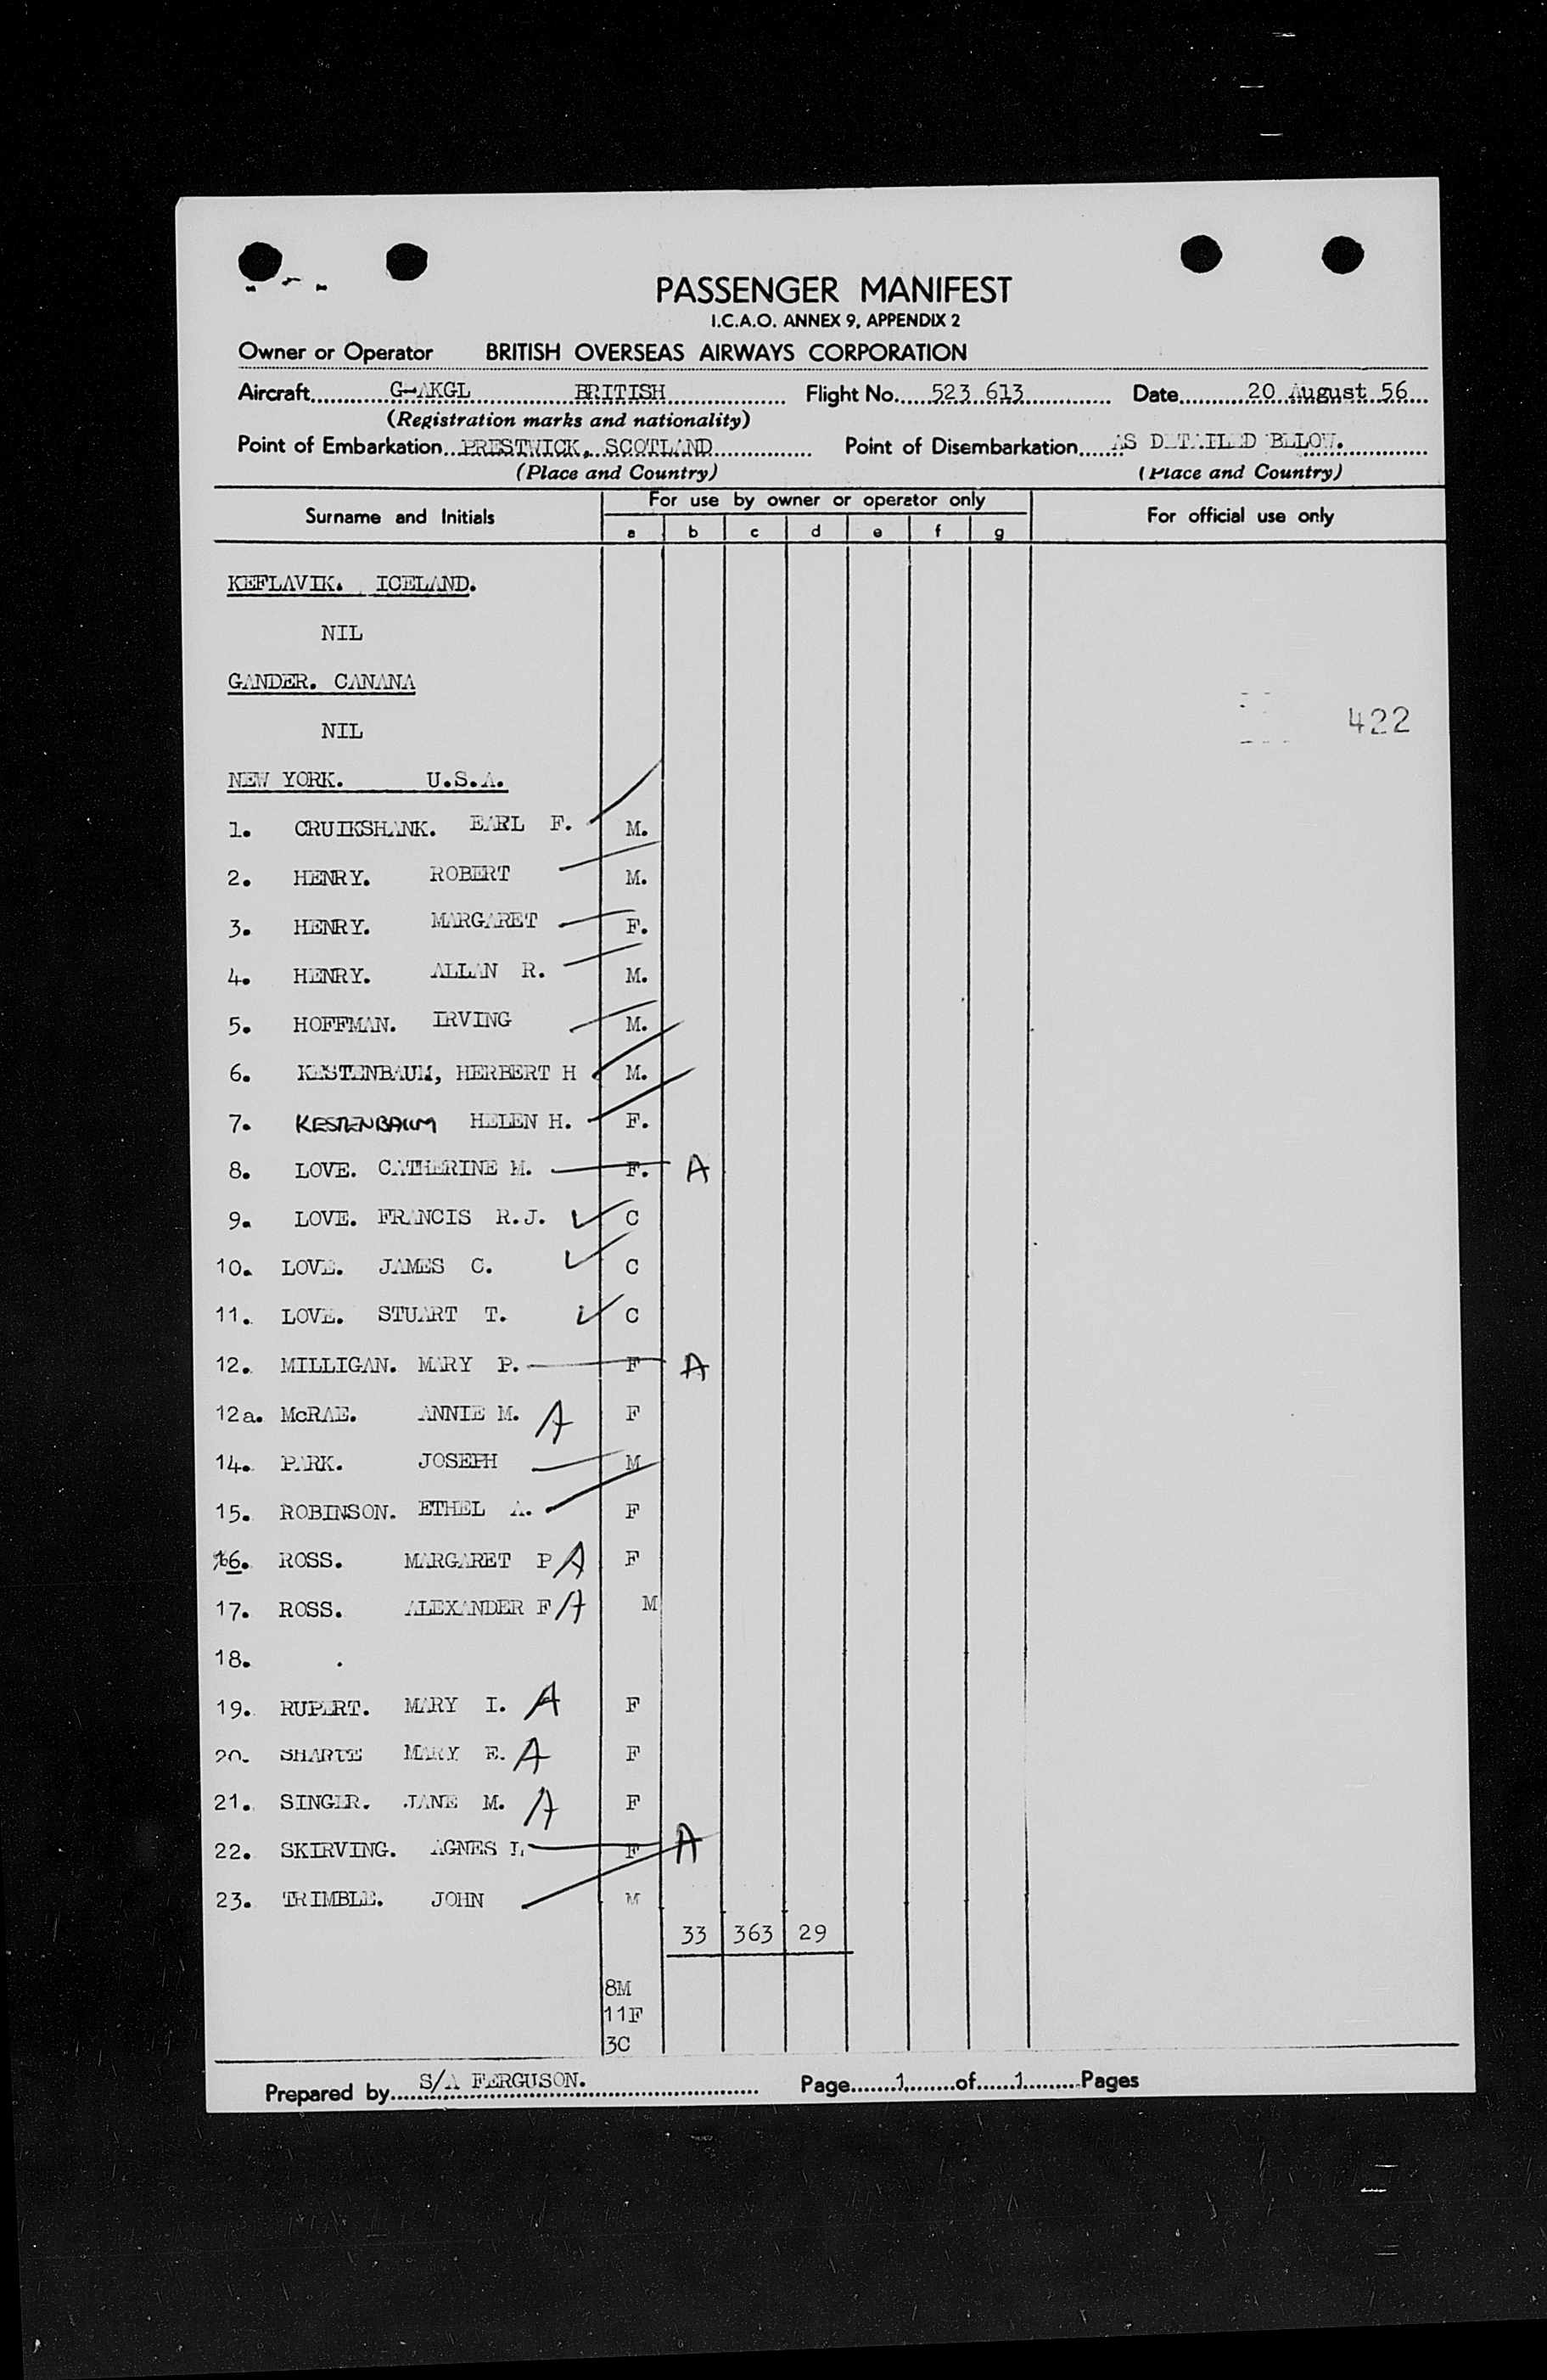 PASSENGER MANIFEST
I.C.A.O. ANNEX 9, APPENDIX 2
Owner or Operator BRITISH OVERSEAS AIRWAYS CORPORATION
Aircraft G-AKGL BRITISH Flight No. 523 613 Date 20 August 56
(Registration marks and nationality)
Point of Embarkation PRESTWICK, SCOTLAND Point of Disembarkation AS DETAILED BELOW.
(Place and Country) (Place and Country)
Surname and Initials For use by owner or operator only For official use only
a b c d e f g
KEFLAVIK. ICELAND.
NIL
GANDER. CANANA
422
NIL
NEW YORK. U.S.A.
1. CRUIKSHANK. EARL F. M.
2. HENRY. ROBERT M.
3. HENRY. MARGARET F.
4. HENRY. ALLAN R. M.
5. HOFFMAN. IRVING M.
6. KESTENBAUM, HERBERT H M.
7. KESTENBAUM HELEN H. F.
8. LOVE. CATHERINE M. F. A
9. LOVE. FRANCIS R.J. C
10. LOVE. JAMES C. C
11. LOVE. STUART T. C
12. MILLIGAN. MARY P. F A
12a. McRAE. ANNIE M. A F
14. PARK. JOSEPH M
15. ROBINSON. ETHEL A. F
16. ROSS. MARGARET P A F
17. ROSS. ALEXANDER F A M
18. .
19. RUPERT. MARY I. A F
20. MARY E. A F
21. SINGER. JANE M. A F
22. SKIRVING. AGNES L F A
23. TRIMBLE. JOHN M
33 363 29
8M
11F
3C
Prepared by S/A FERGUSON. Page 1 of 1 Pages